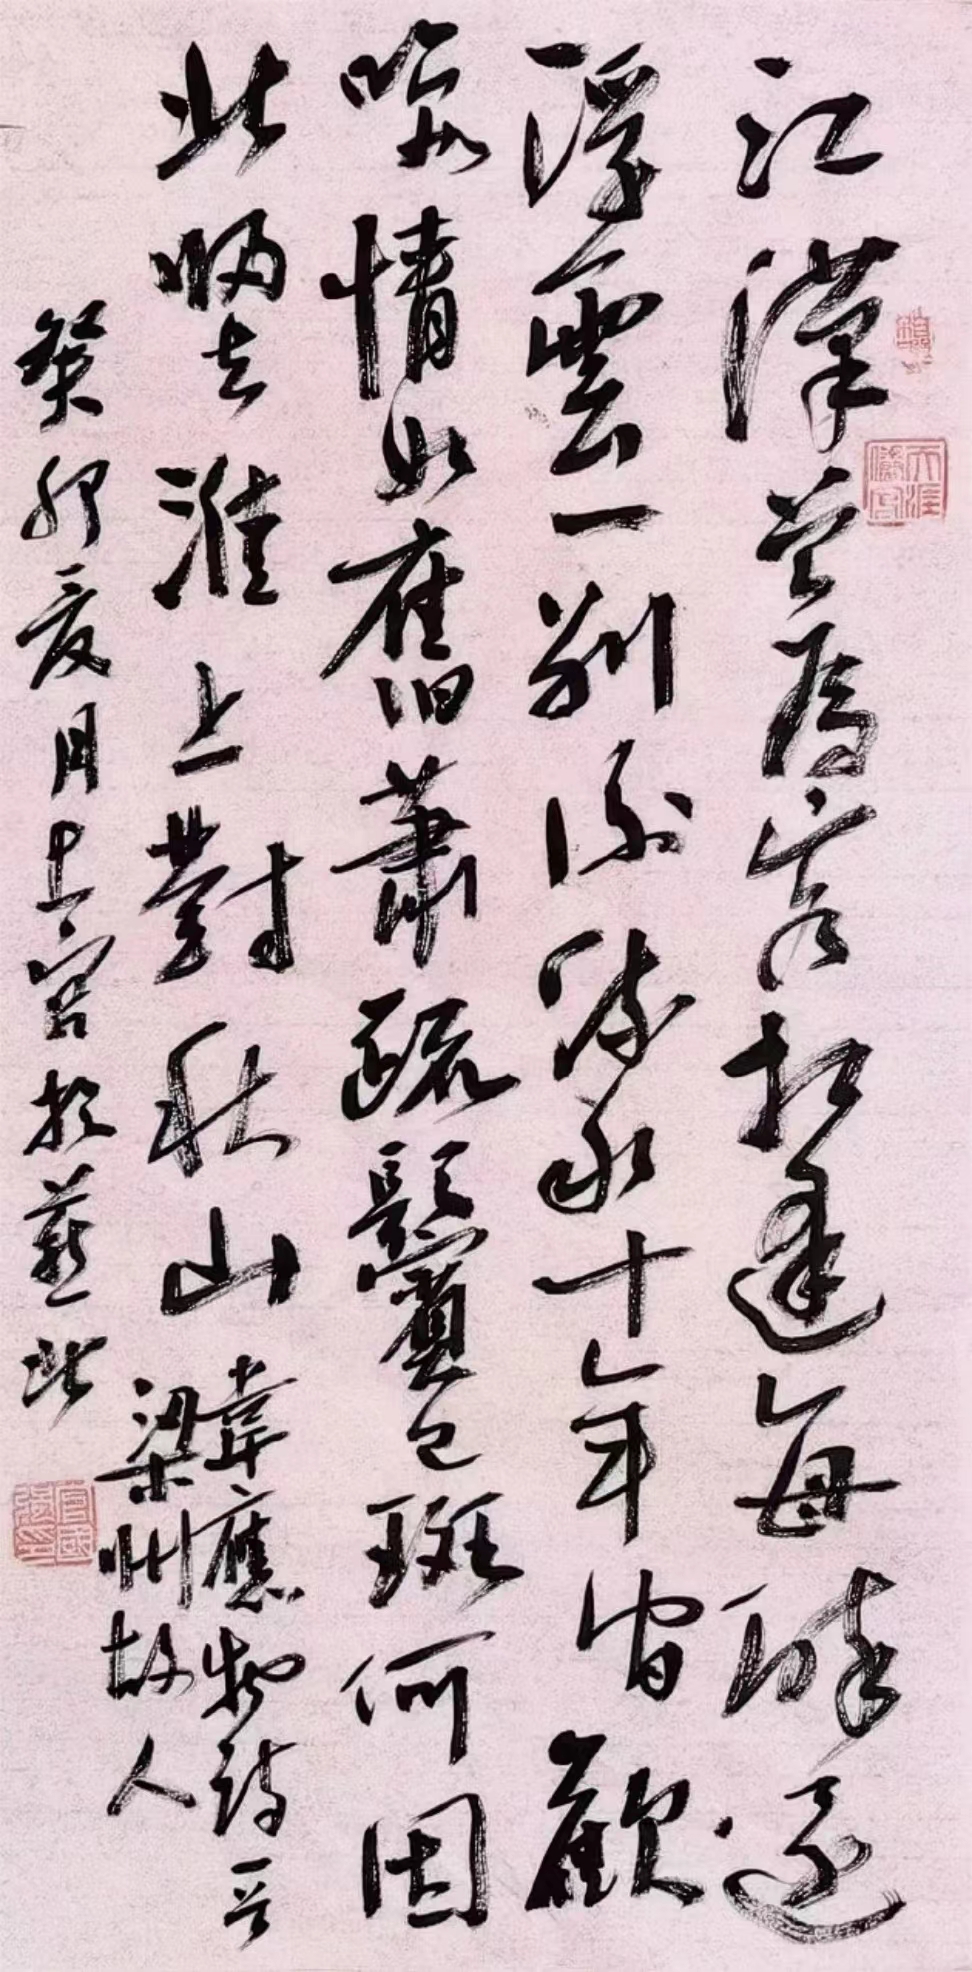 江漢曾為客相逢每醉還
浮雲一別後流水十年間歡
笑情如舊蕭疏鬢已斑何因
北歸去淮上對秋山
韋應物詩
梁州故人
癸卯夏月於燕北